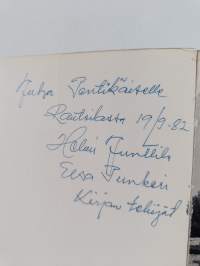 Juha Pentikäiselle
Rautilasta 19/9-82
Helmi Junttila
Eeva Punkari
Kirjan tekijät